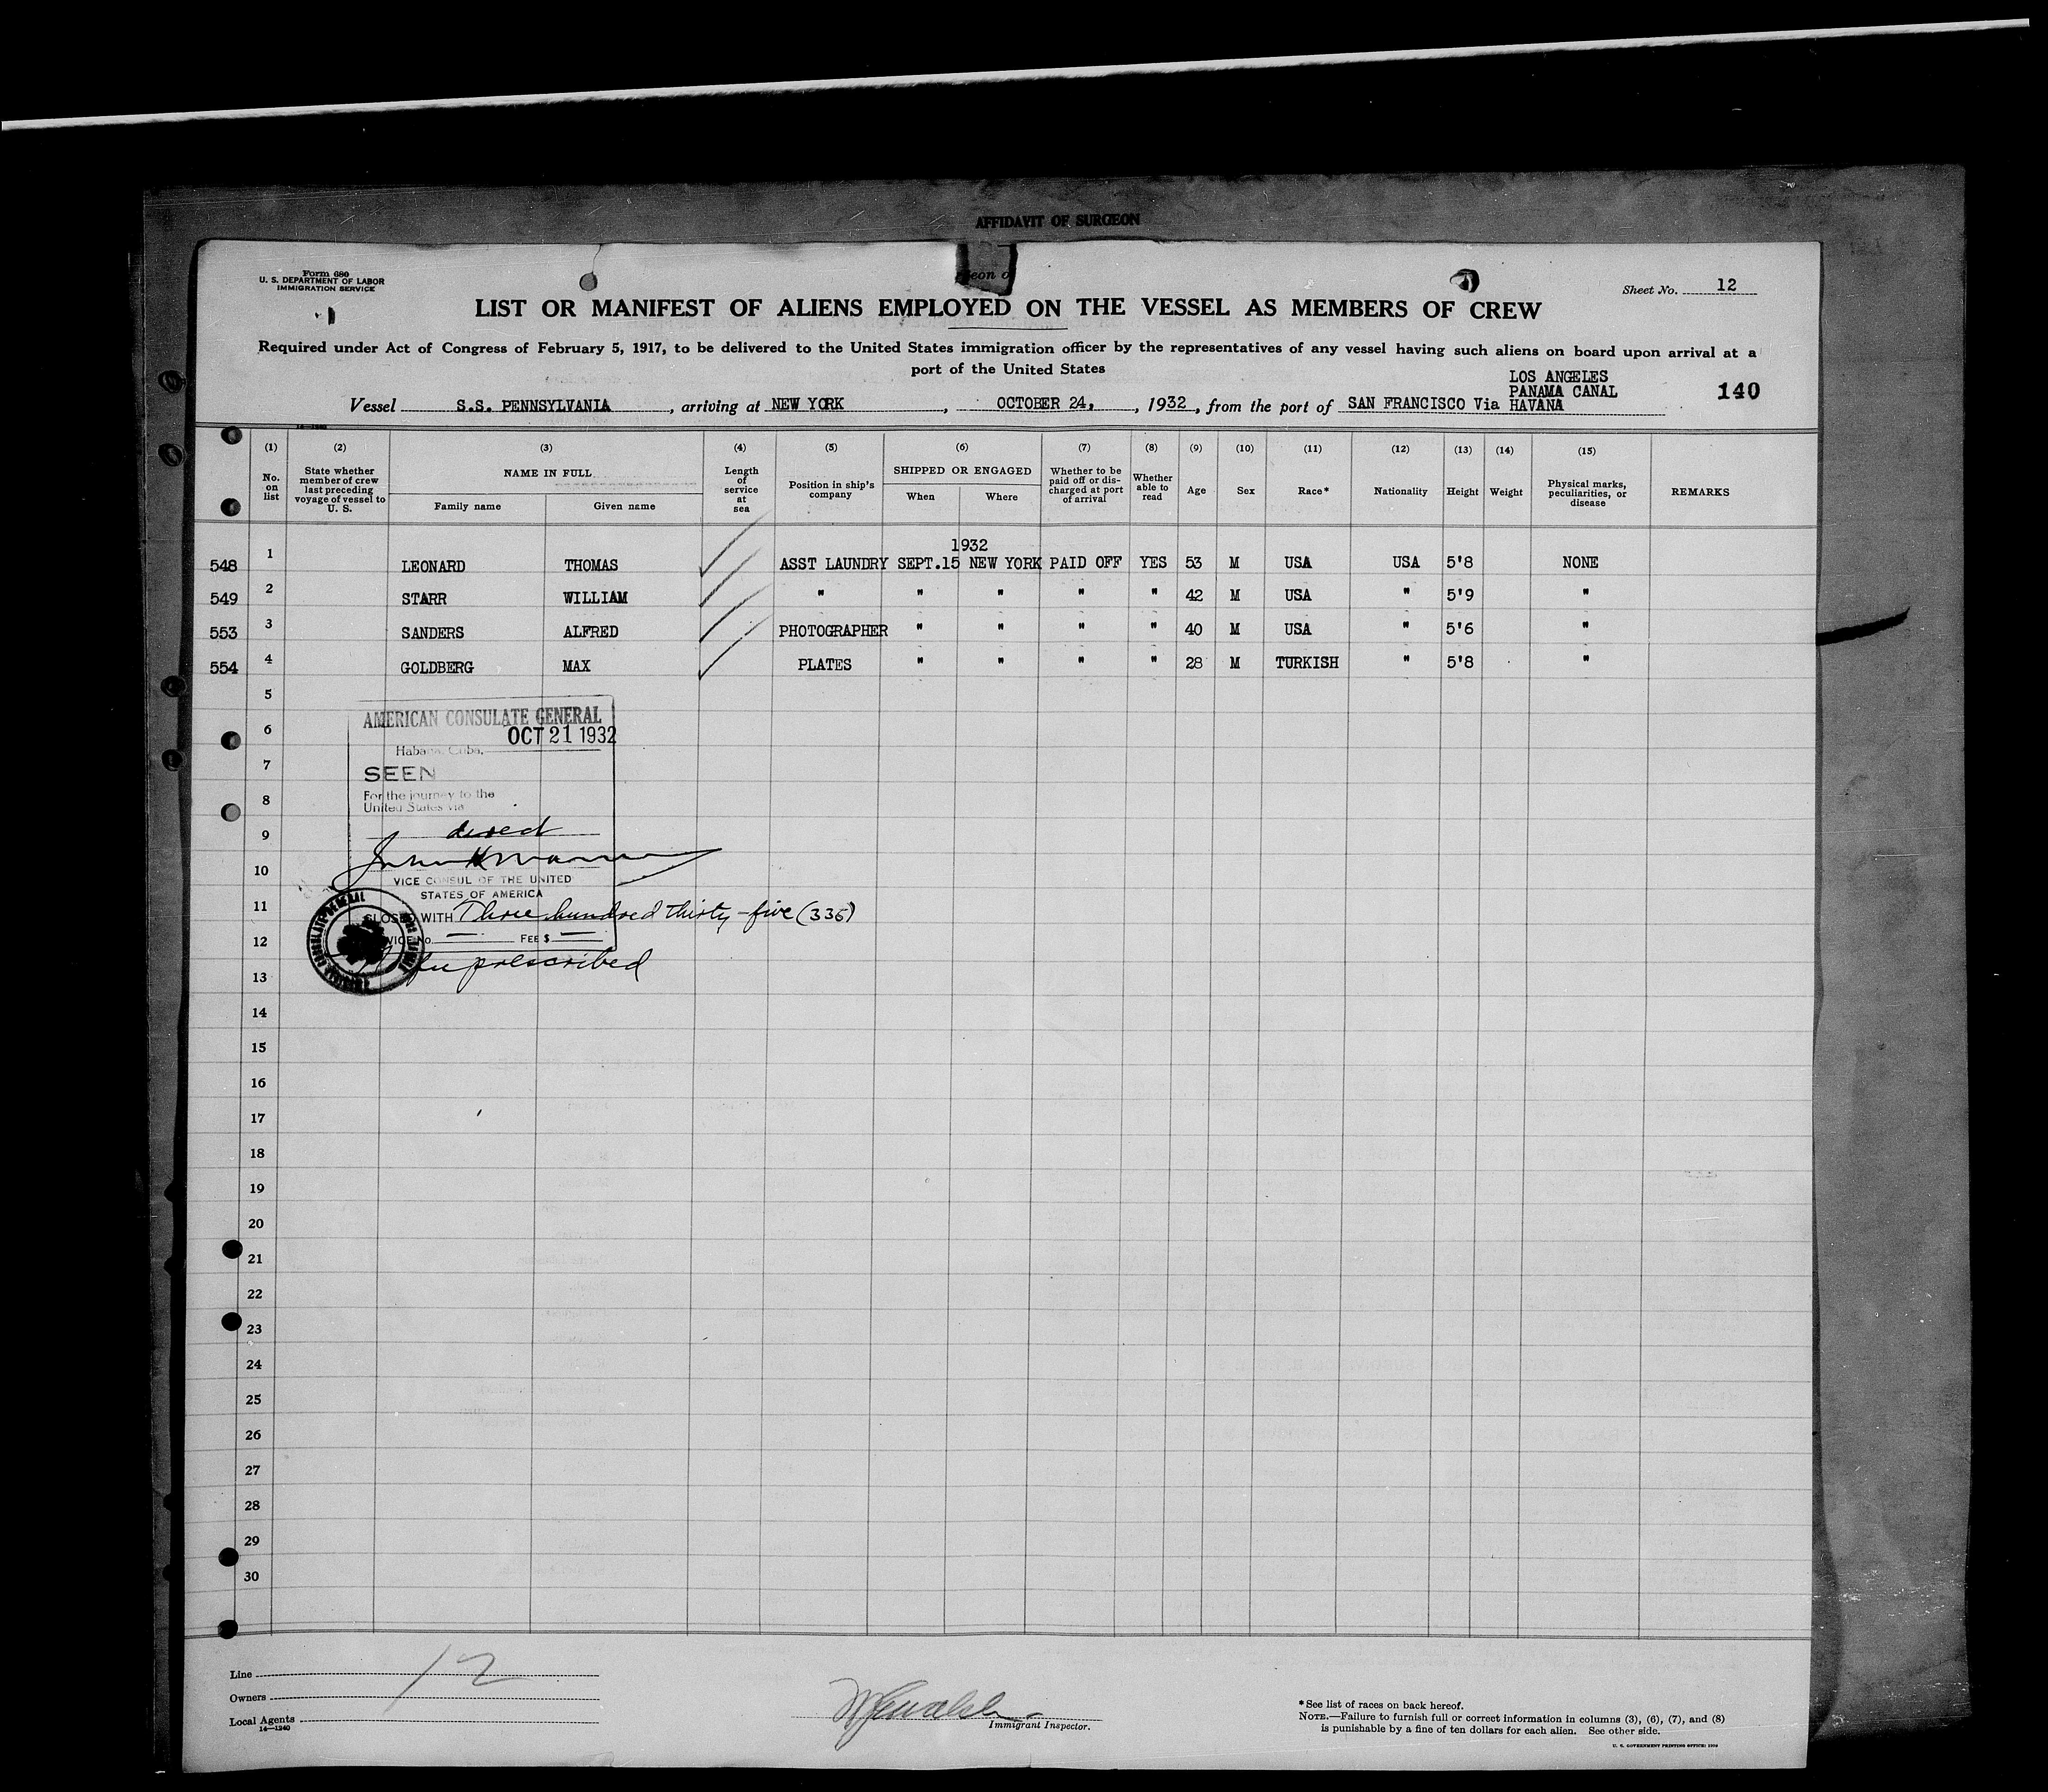 AFFIDAVIT OF SURGEON
Form 680
U. S. DEPARTMENT OF LABOR
IMMIGRATION SERVICE
Sheet No. 12
LIST OR MANIFEST OF ALIENS EMPLOYED ON THE VESSEL AS MEMBERS OF CREW
Required under Act of Congress of February 5, 1917, to be delivered to the United States immigration officer by the representatives of any vessel having such aliens on board upon arrival at a
port of the United States
LOS ANGELES
PANAMA CANAL
140
Vessel S.S. PENNSYLVANIA, arriving at NEW YORK, OCTOBER 24, , 1932, from the port of SAN FRANCISCO Via HAVANA
(1) (2) (3) (4) (5) (6) (7) (8) (9) (10) (11) (12) (13) (14) (15)
No. on list
State whether member of crew last preceding voyage of vessel to U. S.
NAME IN FULL
Family name
Given name
Length of service at sea
Position in ship's company
SHIPPED OR ENGAGED
When
Where
Whether to be paid off or discharged at port of arrival
Whether able to read
Age
Sex
Race*
Nationality
Height
Weight
Physical marks, peculiarities, or disease
REMARKS
1932
548 1 LEONARD THOMAS ASST LAUNDRY SEPT.15 NEW YORK PAID OFF YES 53 M USA USA 5'8 NONE
549 2 STARR WILLIAM " " " " " 42 M USA " 5'9 "
553 3 SANDERS ALFRED PHOTOGRAPHER " " " " 40 M USA " 5'6 "
554 4 GOLDBERG MAX PLATES " " " " 28 M TURKISH " 5'8 "
5
AMERICAN CONSULATE GENERAL
6
OCT 21 1932
Habana, Cuba,
7
SEEN
8
For the journey to the
United States via
9
10
VICE CONSUL OF THE UNITED
STATES OF AMERICA
11
CLOSED WITH Three hundred thirty-five (335)
12
No. — FEE $ —
prescribed
13
14
15
16
17
18
19
20
21
22
23
24
25
26
27
28
29
30
Line
12
Owners
Local Agents
14—1240
Immigrant Inspector.
* See list of races on back hereof.
NOTE.—Failure to furnish full or correct information in columns (3), (6), (7), and (8)
is punishable by a fine of ten dollars for each alien. See other side.
U. S. GOVERNMENT PRINTING OFFICE: